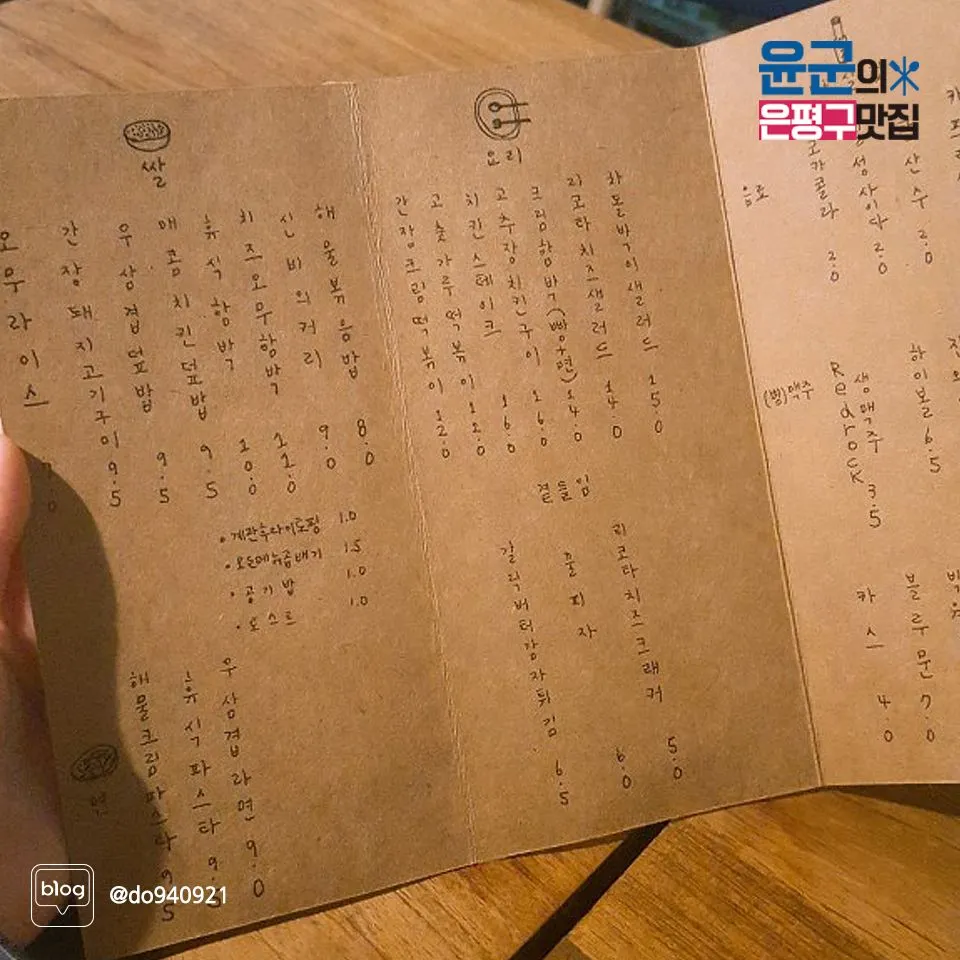 윤군의
은평구맛집
쌀
오무라이스
간장돼지고기구이 9.5
우삼겹덮밥 9.5
매콤치킨덮밥 9.5
휴식함박 10.0
치즈오무함박 11.0
신비의커리 9.0
해물볶음밥 8.0
•계란후라이토핑 1.0
•모든메뉴곱배기 1.5
•공기밥 1.0
•토스트 1.0
면
해물크림파스타 9.5
휴식파스타 9.5
우삼겹라면 9.0
요리
간장크림떡볶이 12.0
고춧가루떡볶이 12.0
치킨스테이크 16.0
고추장치킨구이 16.0
크림함박(빵+면) 14.0
리코타치즈샐러드 14.0
차돌박이샐러드 15.0
곁들임
갈릭버터감자튀김 6.5
풀피자 6.0
리코타치즈크래커 5.0
음료
코카콜라 2.0
성사이다 2.0
산수 2.0
(병)맥주
생맥주 Redrock 3.5
하이볼 6.5
카스 4.0
블루문 7.0
blog @do940921